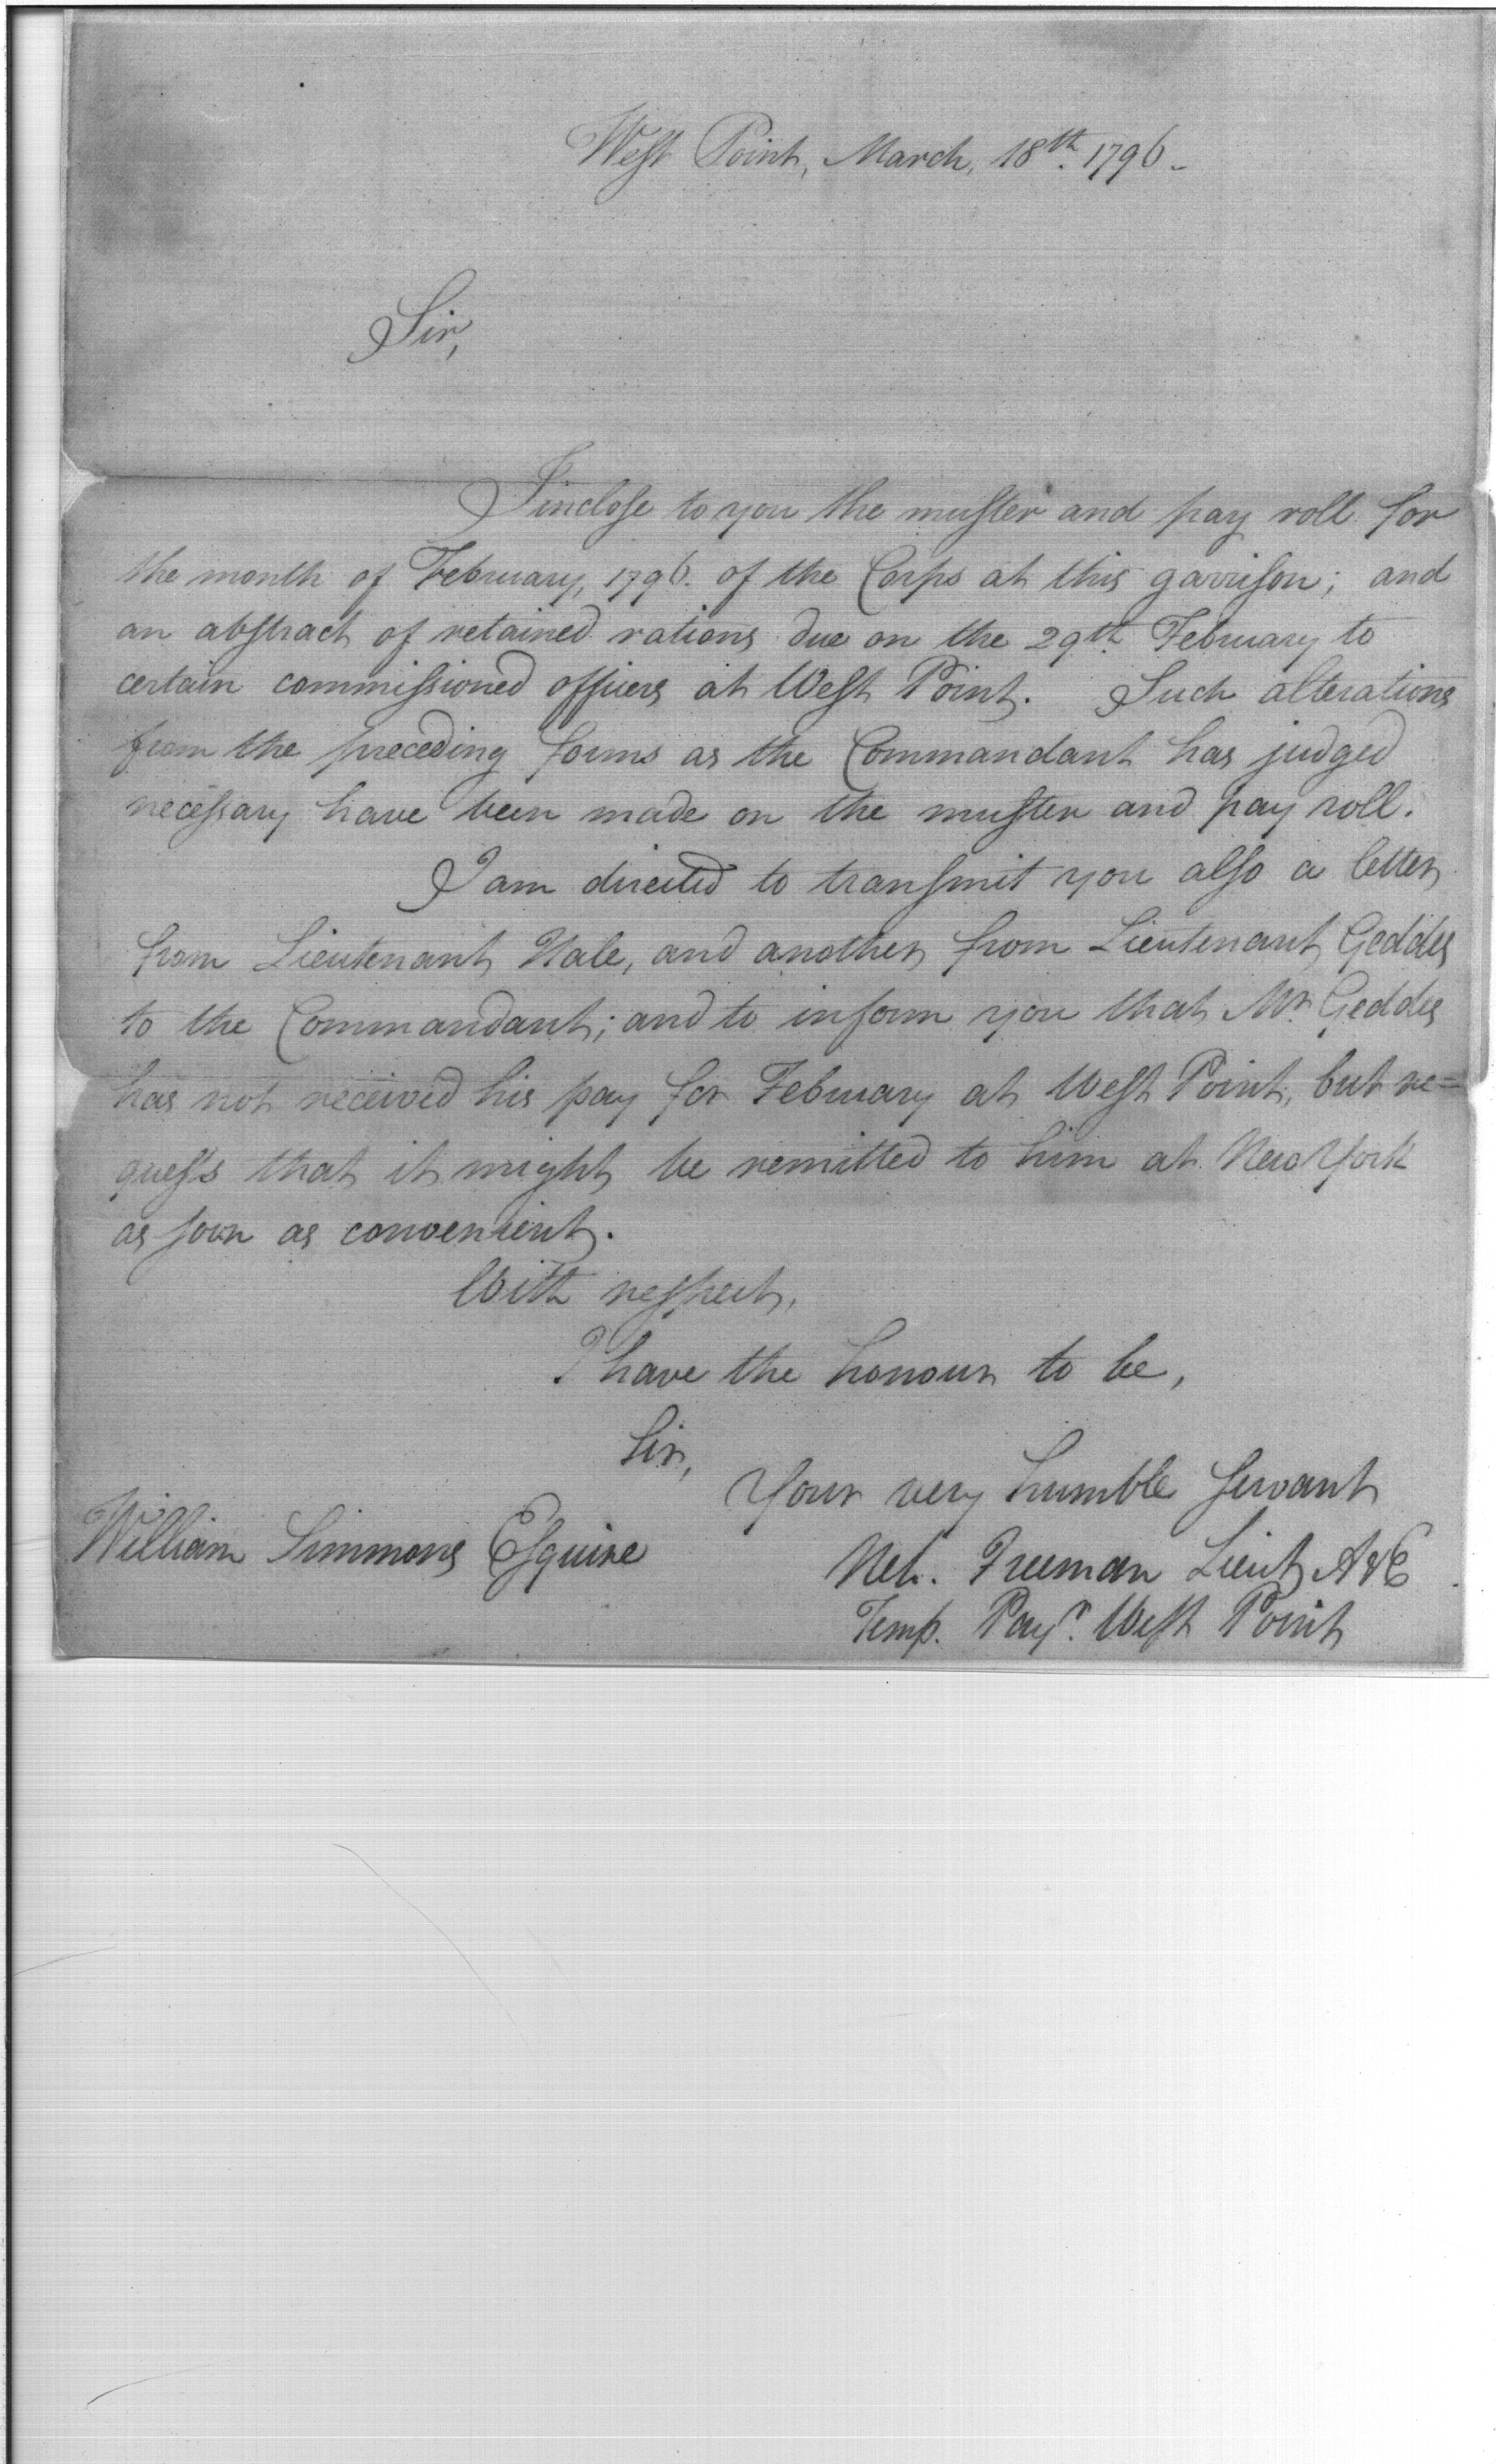 West Point, March, 18th. 1796.
Sir,
I inclose to you the muster and pay roll for
the month of February, 1796. of the Corps at this garrison; and
an abstract of retained rations due on the 29th. February to
certain commissioned officers at West Point. Such alterations
from the preceding forms as the Commandant has judged
necessary have been made on the muster and pay roll.
I am directed to transmit you also a letter
from Lieutenant Hale, and another from Lieutenant Geddes
to the Commandant; and to inform you that Mr. Geddes
has not received his pay for February at West Point, but re=
quests that it might be remitted to him at New York
as soon as convenient.
With respect,
I have the honour to be,
Sir,
Your very humble servant
William Simmons Esquire
Neh. Freeman Lieut A&E
Temp. Payr. West Point